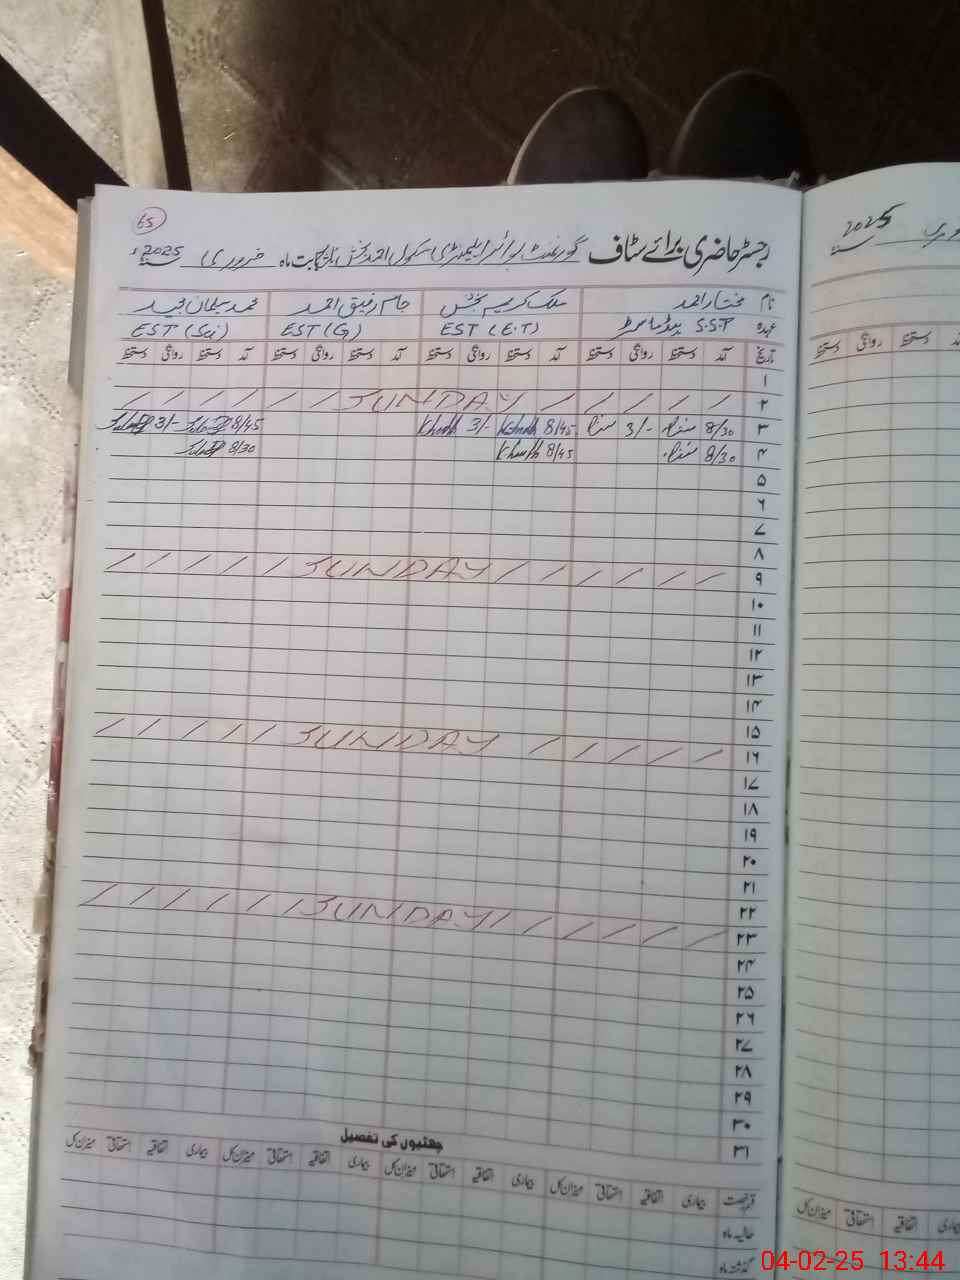 65
رجسٹر حاضری برائے سٹاف گورنمنٹ بوائز ایلیمنٹری سکول احمد بخش بابت ماہ فروری 2025ء
2025
نام مختار احمد ملک کریم بخش جام رفیق احمد محمد سلمان مجید
عہدہ S.S.T ہیڈماسٹر EST (E.T) EST (G) EST (Sci)
تاریخ آمد دستخط روانگی دستخط آمد دستخط روانگی دستخط آمد دستخط روانگی دستخط آمد دستخط روانگی دستخط
دستخط روانگی دستخط آمد
۱
۲ / / / / SUNDAY / / / / / /
۳ 8/30 3/- 8/45 3/- 8/45 3/-
۴ 8/30 8/45 8/30
۵
۶
۷
۸
۹ / / / / / / SUNDAY / / / / /
۱۰
۱۱
۱۲
۱۳
۱۴
۱۵
۱۶ / / / / / SUNDAY / / / / /
۱۷
۱۸
۱۹
۲۰
۲۱
۲۲
۲۳ / / / / / / SUNDAY / / / / / /
۲۴
۲۵
۲۶
۲۷
۲۸
۲۹
۳۰
۳۱
چھٹیوں کی تفصیل
قسم رخصت بیماری اتفاقیہ استحقاقی میزان کل بیماری اتفاقیہ استحقاقی میزان کل بیماری اتفاقیہ استحقاقی میزان کل بیماری اتفاقیہ استحقاقی میزان کل
بیماری اتفاقیہ استحقاقی میزان کل
حالیہ ماہ
گذشتہ ماہ
04-02-25 13:44